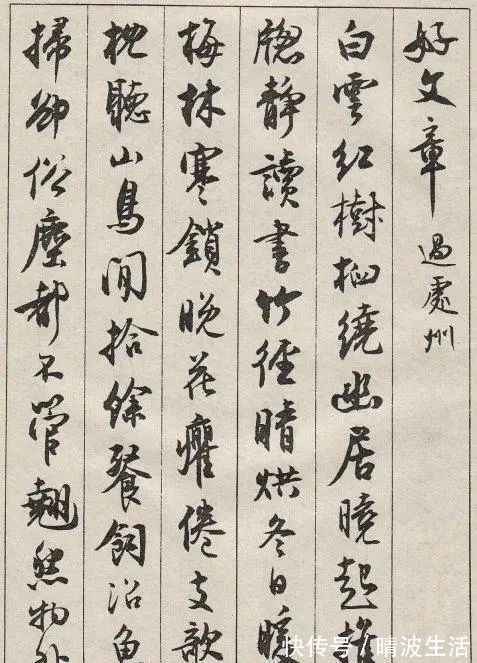 好文章 過處州
白雲紅樹相繞幽居曉起
牕靜讀書竹徑晴烘冬日暖
梅林寒鎖晚花癯倦支欹
枕聽山鳥閒拾餘餐飼沼魚
掃卻俗塵都不管翹然物外
快传号/晴波生活